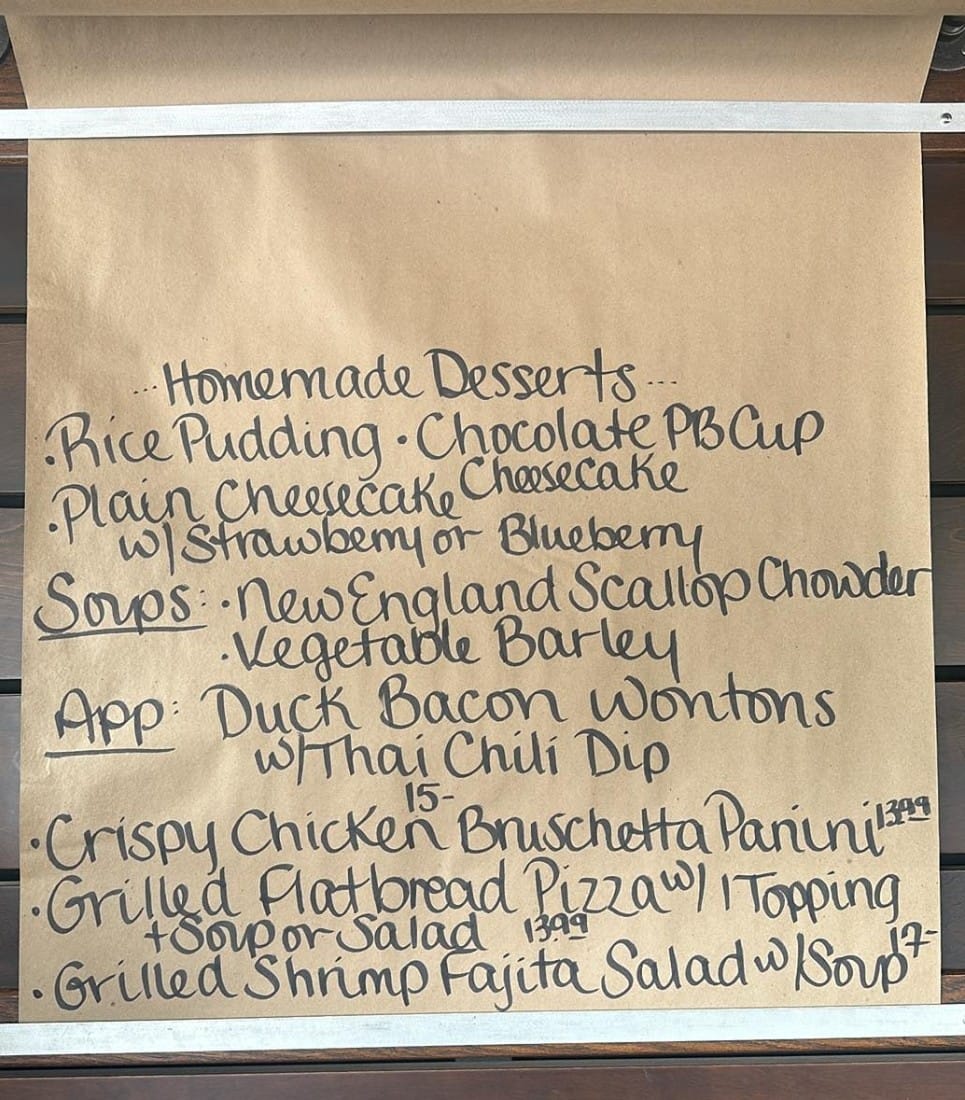 ...Homemade Desserts...
·Rice Pudding ·Chocolate PB Cup
Cheesecake
·Plain Cheesecake
w/Strawberry or Blueberry
Soups: ·New England Scallop Chowder
·Vegetable Barley
App: Duck Bacon Wontons
w/Thai Chili Dip
15-
·Crispy Chicken Bruschetta Panini 13.99
·Grilled Flatbread Pizza w/ 1 Topping
+Soup or Salad 13.99
·Grilled Shrimp Fajita Salad w/Soup 17-